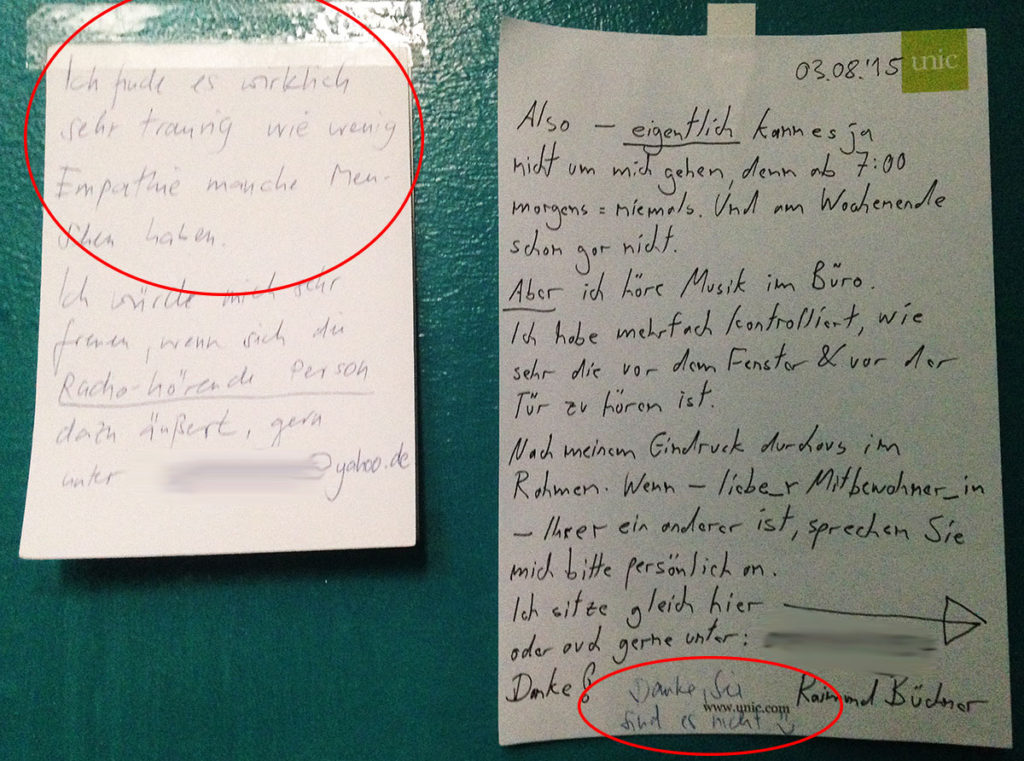 Ich finde es wirklich
sehr traurig wie wenig
Empathie manche Men-
schen haben.
Ich würde mich sehr
freuen, wenn sich die
Radio-hörende Person
dazu äußert, gern
unter @yahoo.de
03.08.'15
unic
Also – eigentlich kann es ja
nicht um mich gehen, denn ab 7:00
morgens = niemals. Und am Wochenende
schon gar nicht.
Aber ich höre Musik im Büro.
Ich habe mehrfach kontrolliert, wie
sehr die vor dem Fenster & vor der
Tür zu hören ist.
Nach meinem Eindruck durchaus im
Rahmen. Wenn – liebe_r Mitbewohner_in
– Ihrer ein anderer ist, sprechen Sie
mich bitte persönlich an.
Ich sitze gleich hier
oder auch gerne unter:
Danke!
Raimund Büchner
Danke, Sie
www.unic.com
sind es nicht